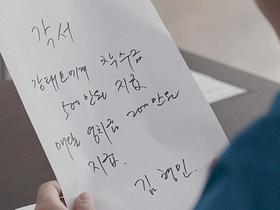 각서
장태오에게 착수금
500만원 지급.
매달 영치금 200만원
지급.
김형민.